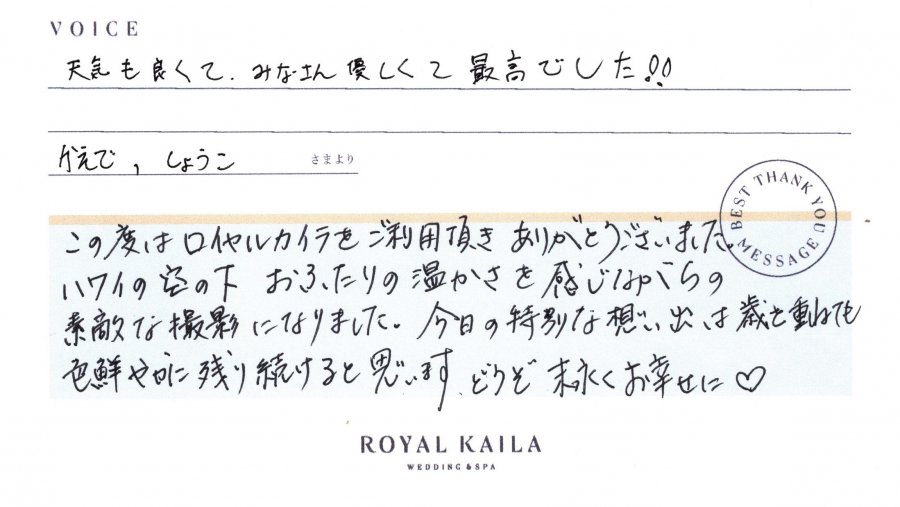 VOICE
天気も良くて、みなさん優しくて最高でした!!
かえで, しょうこ さまより
BEST THANK YOU MESSAGE
この度はロイヤルカイラをご利用頂きありがとうございました。
ハワイの空の下 おふたりの温かさを感じながらの
素敵な撮影になりました。今日の特別な想い出は歳を重ねても
色鮮やかに残り続けると思います。どうぞ末永くお幸せに♡
ROYAL KAILA
WEDDING & SPA